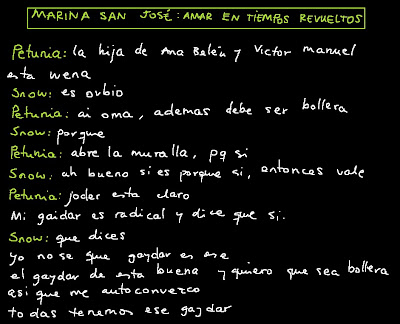 MARINA SAN JOSÉ: AMAR EN TIEMPOS REVUELTOS
Petunia: la hija de Ana Belén y Victor manuel
esta wena
Snow: es ovbio
Petunia: ai oma, ademas debe ser bollera
Snow: porque
Petunia: abre la muralla, pq si
Snow: ah bueno si es porque si, entonces vale
Petunia: joder esta claro
Mi gaidar es radical y dice que si.
Snow: que dices
yo no se que gaydar es ese
el gaydar de esta buena y quiero que sea bollera
asi que me autoconvenzo
todas tenemos ese gaydar